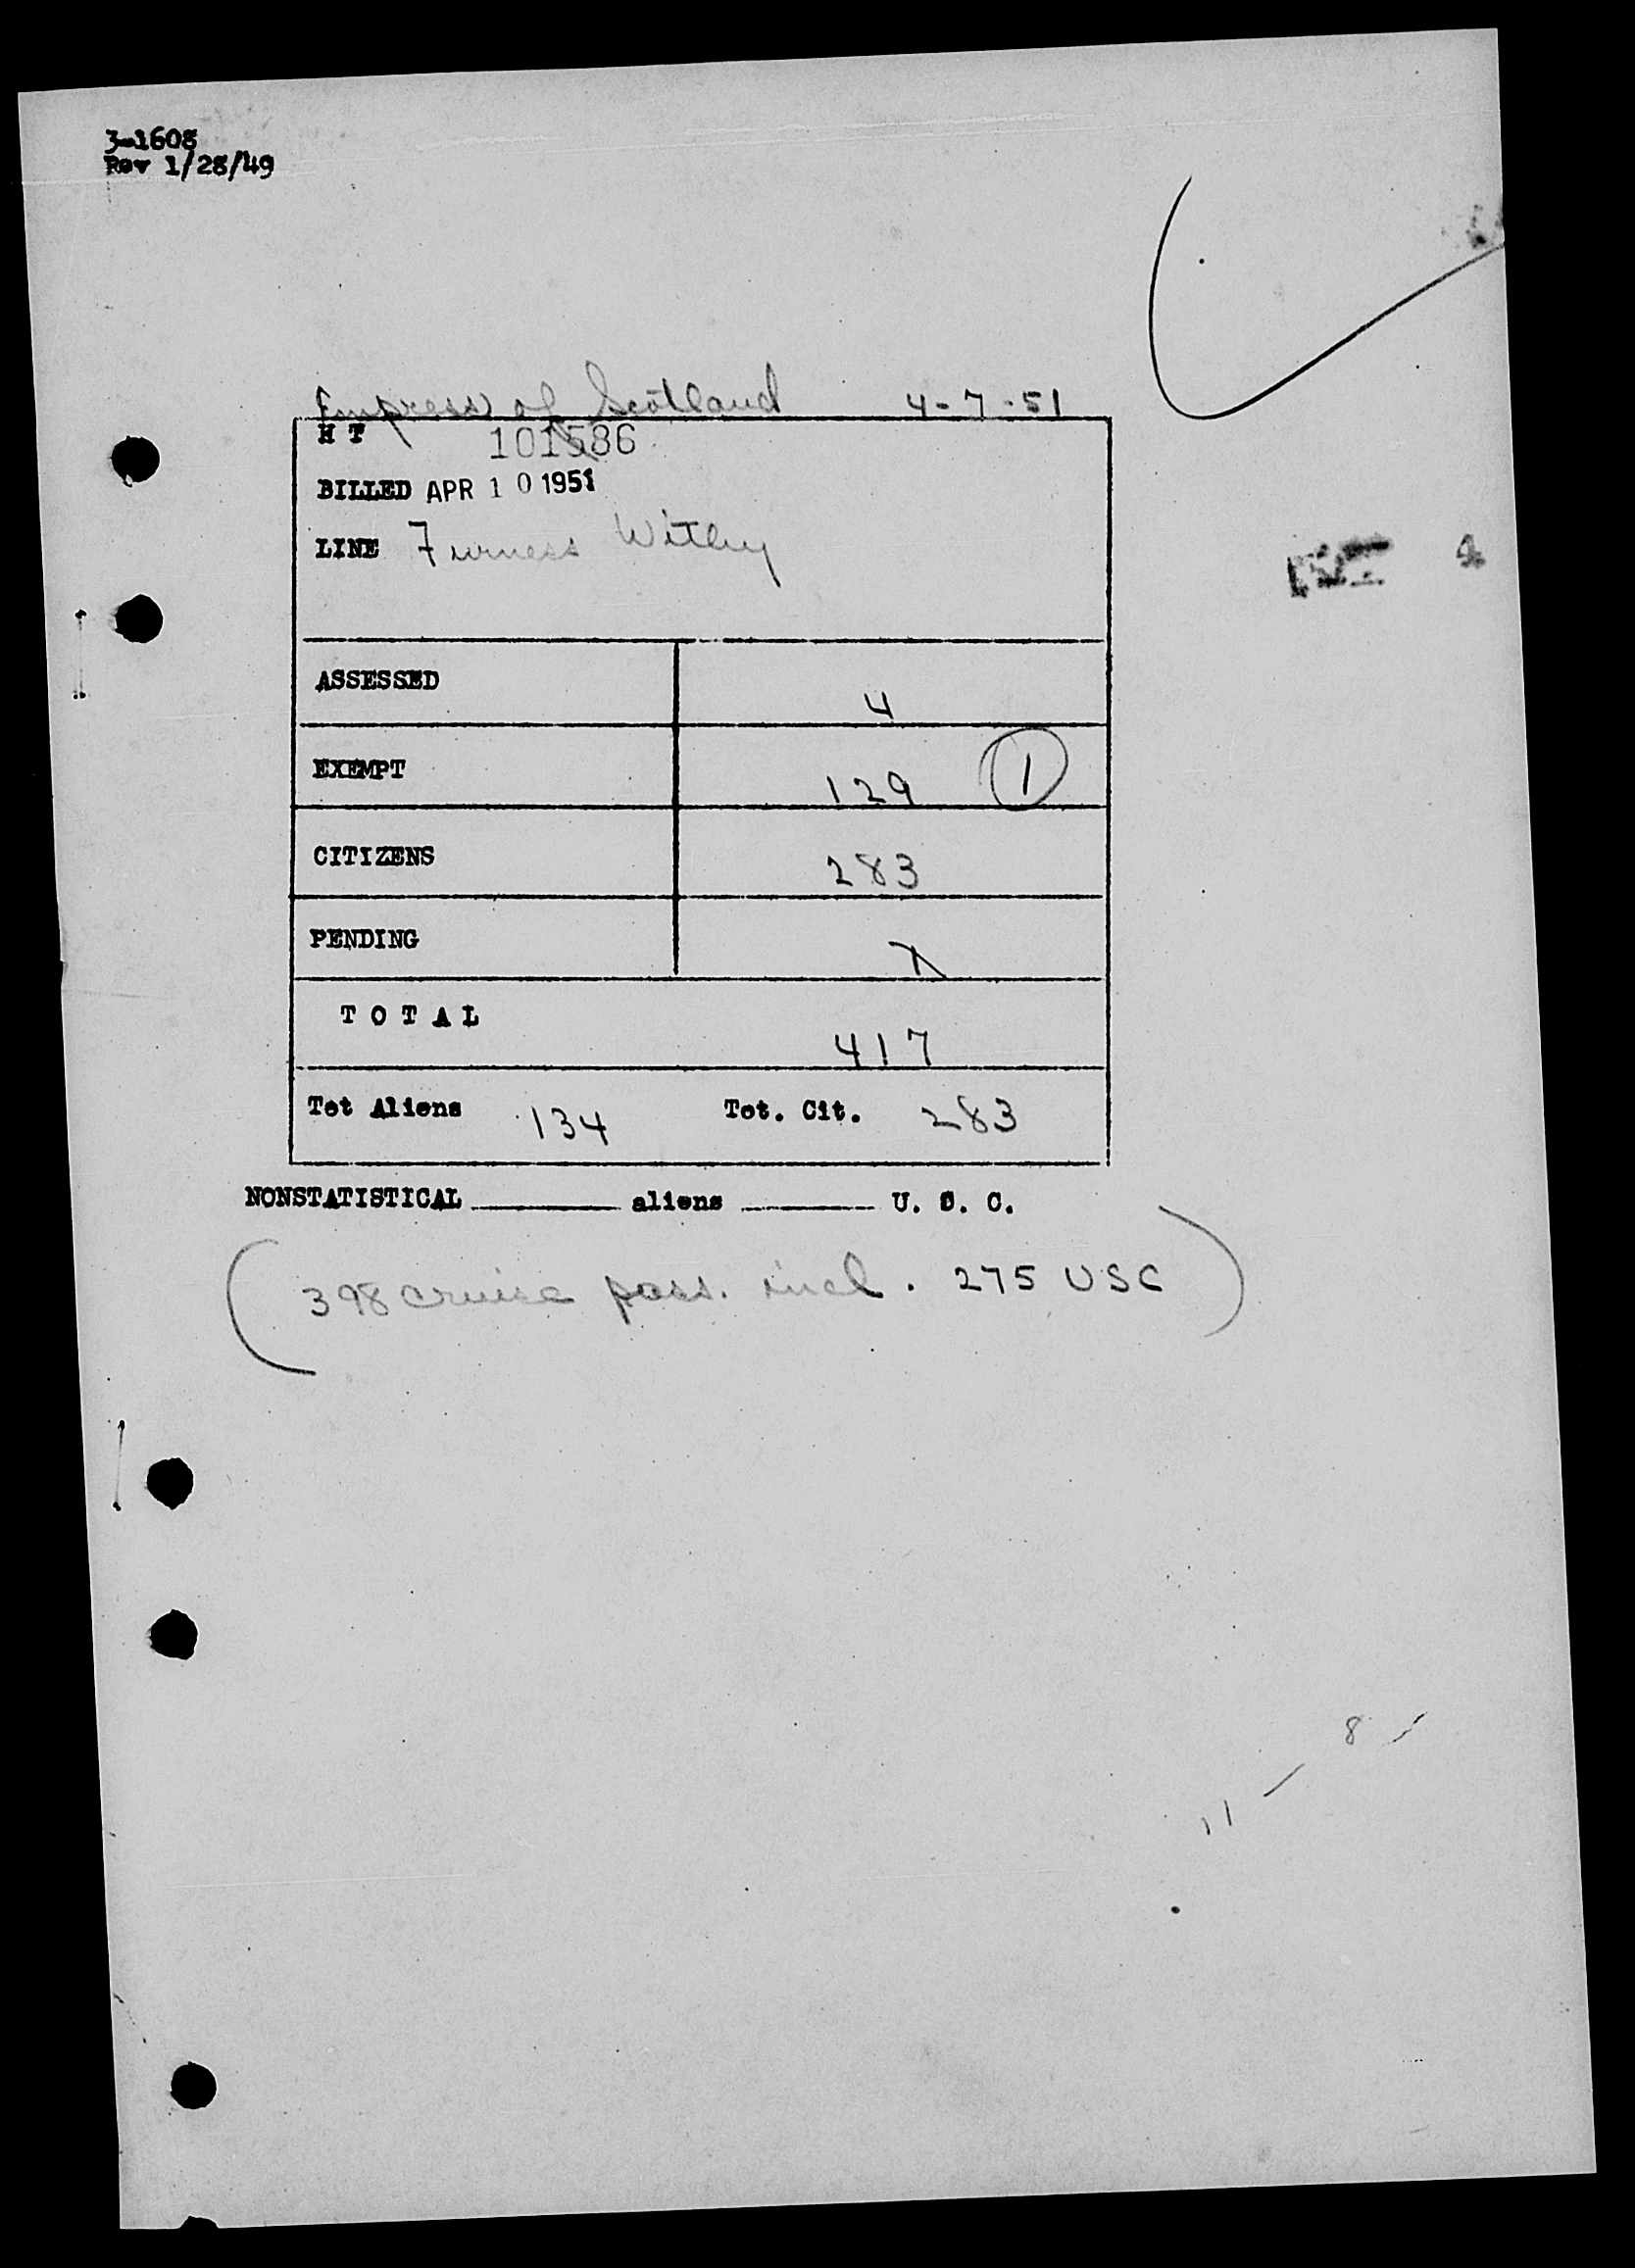 3-1608
Rev 1/28/49
Empress of Scotland 4-7-51
H T 101586
BILLED APR 10 1951
LINE Furness Withy
ASSESSED 4
EXEMPT 129 1
CITIZENS 283
PENDING
TOTAL 417
Tot Aliens 134 Tot. Cit. 283
NONSTATISTICAL aliens U. S. C.
(398 cruise pass. incl. 275 USC)
8
11 —